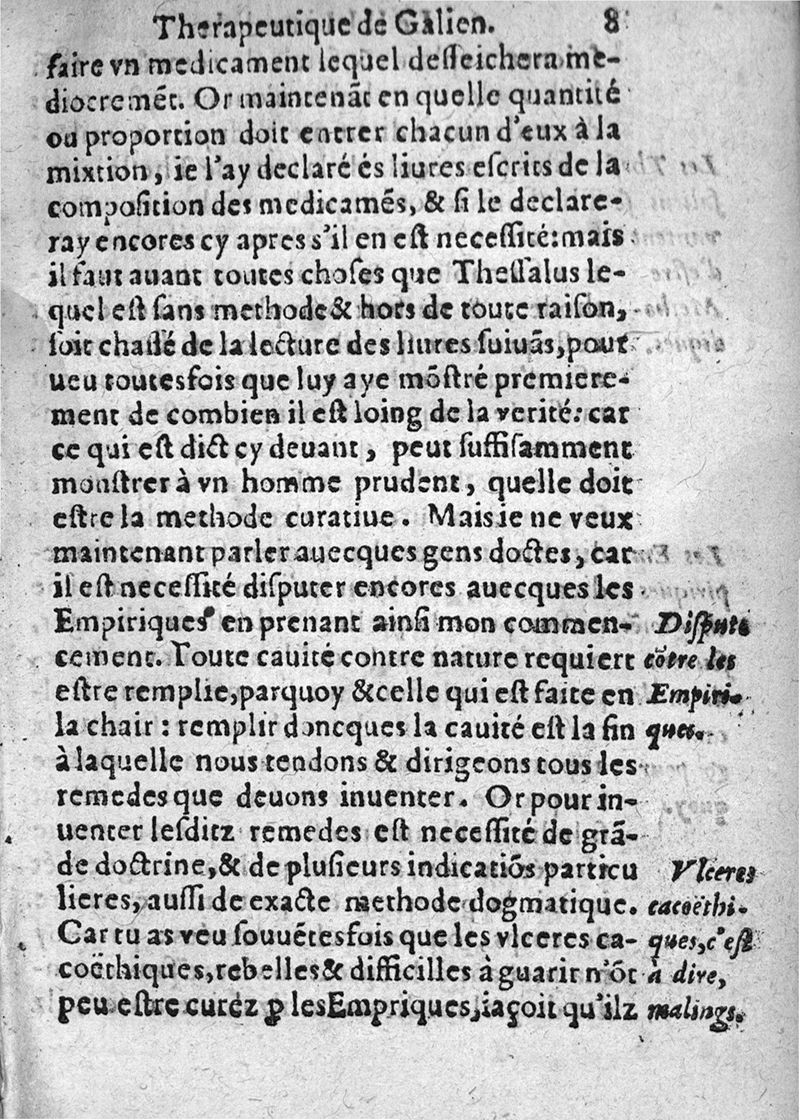 Therapeutique de Galien. 8
faire vn medicament lequel deſſeichera me-
diocremẽt. Or maintenãt en quelle quantité
ou proportion doit entrer chacun d'eux à la
mixtion, ie l'ay declaré és liures eſcrits de la
compoſition des medicamẽs, & ſi le declare-
ray encores cy apres s'il en eſt neceſſité: mais
il faut auant toutes choſes que Theſſalus le-
quel eſt ſans methode & hors de toute raiſon,
ſoit chaſſé de la lecture des liures ſuiuãs, pour
ueu toutesfois que luy aye mõſtré premiere-
ment de combien il eſt loing de la verité: car
ce qui eſt dict cy deuant, peut ſuffiſamment
monſtrer à vn homme prudent, quelle doit
eſtre la methode curatiue. Mais ie ne veux
maintenant parler auecques gens doctes, car
il eſt neceſſité diſputer encores auecques les
Empiriques en prenant ainſi mon commen-
cement. Toute cauité contre nature requiert
eſtre remplie, parquoy & celle qui eſt faite en
la chair: remplir doncques la cauité eſt la fin
à laquelle nous tendons & dirigeons tous les
remedes que deuons inuenter. Or pour in-
uenter leſditz remedes eſt neceſſité de grã-
de doctrine, & de pluſieurs indicatiõs particu
lieres, auſſi de exacte methode dogmatique.
Car tu as veu ſouuẽtesfois que les vlceres ca-
coëthiques, rebelles & difficilles à guarir n'õt
peu eſtre curéz ꝑ les Empriques, iaçoit qu'ilz
Diſpute
cõtre les
Empiri-
ques.
Vlceres
cacoëthi-
ques, c'eſt
à dire,
malings.